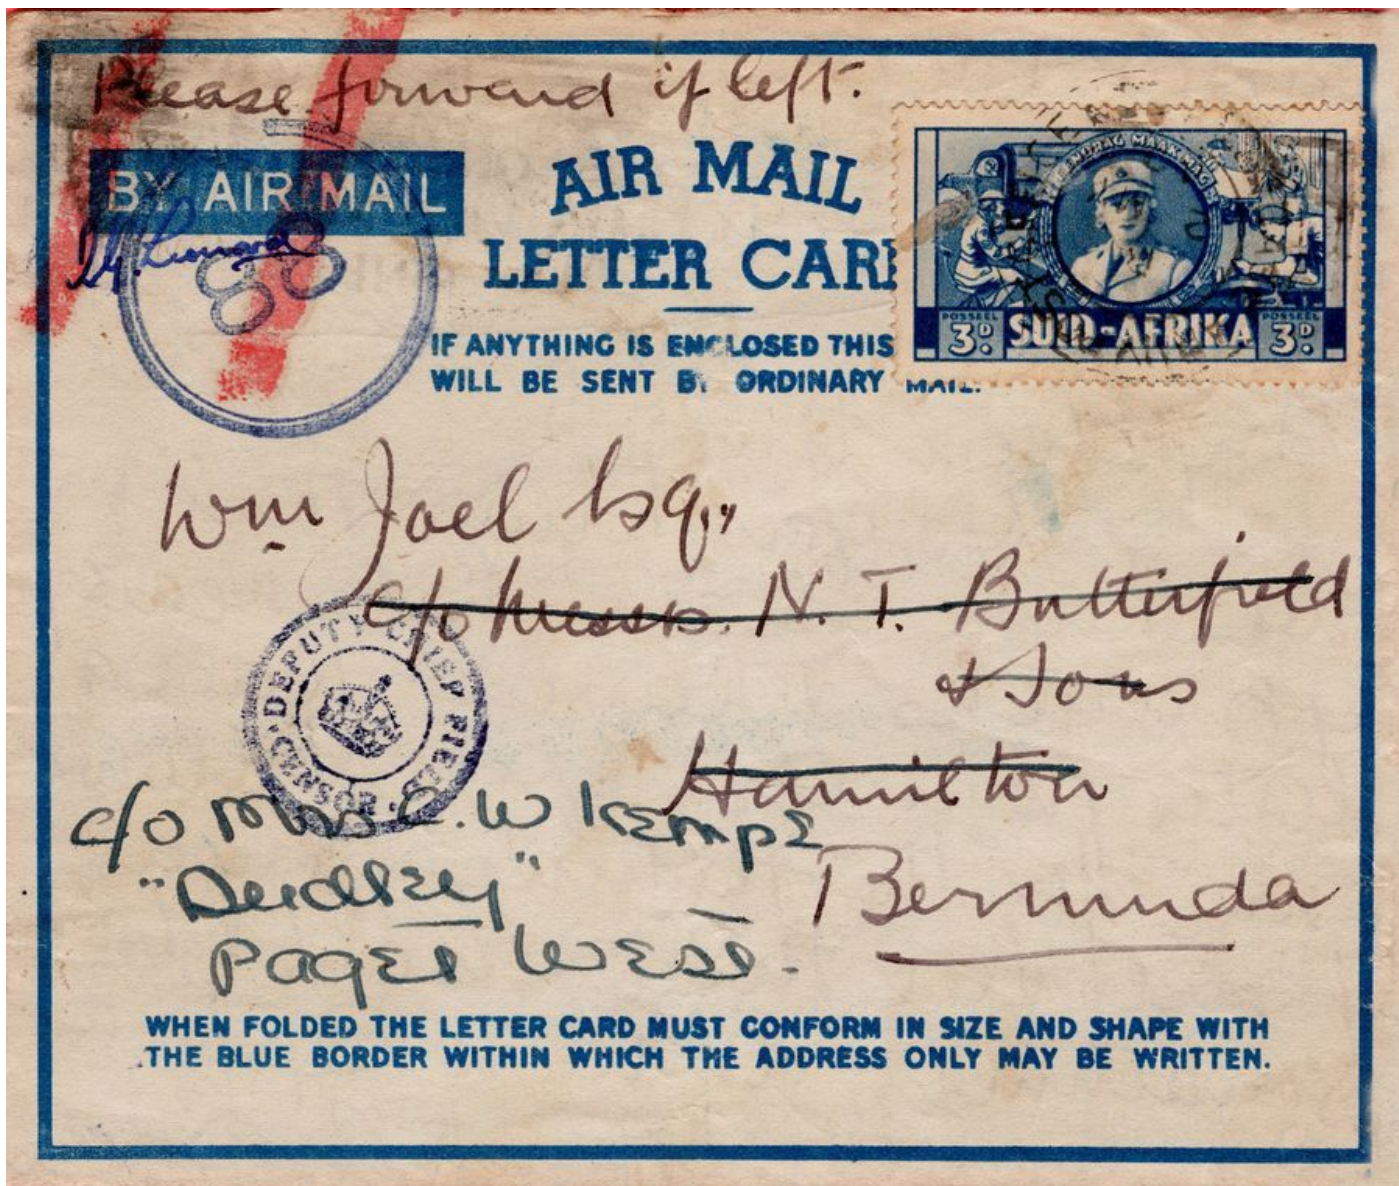 Please forward if left.
BY AIR MAIL
AIR MAIL
LETTER CAR
88
IF ANYTHING IS ENCLOSED THIS
WILL BE SENT BY ORDINARY MAIL.
EENDRAG MAAK MAG
POSSEEL POSSEEL
3D. SUID-AFRIKA 3D.
Wm Joel Esq.,
c/o Messrs. N. T. Butterfield
& Sons
Hamilton
Bermuda
DEPUTY CHIEF FIELD CENSOR
c/o Mrs C. W Kempe
"Dudley"
Paget West.
WHEN FOLDED THE LETTER CARD MUST CONFORM IN SIZE AND SHAPE WITH
THE BLUE BORDER WITHIN WHICH THE ADDRESS ONLY MAY BE WRITTEN.